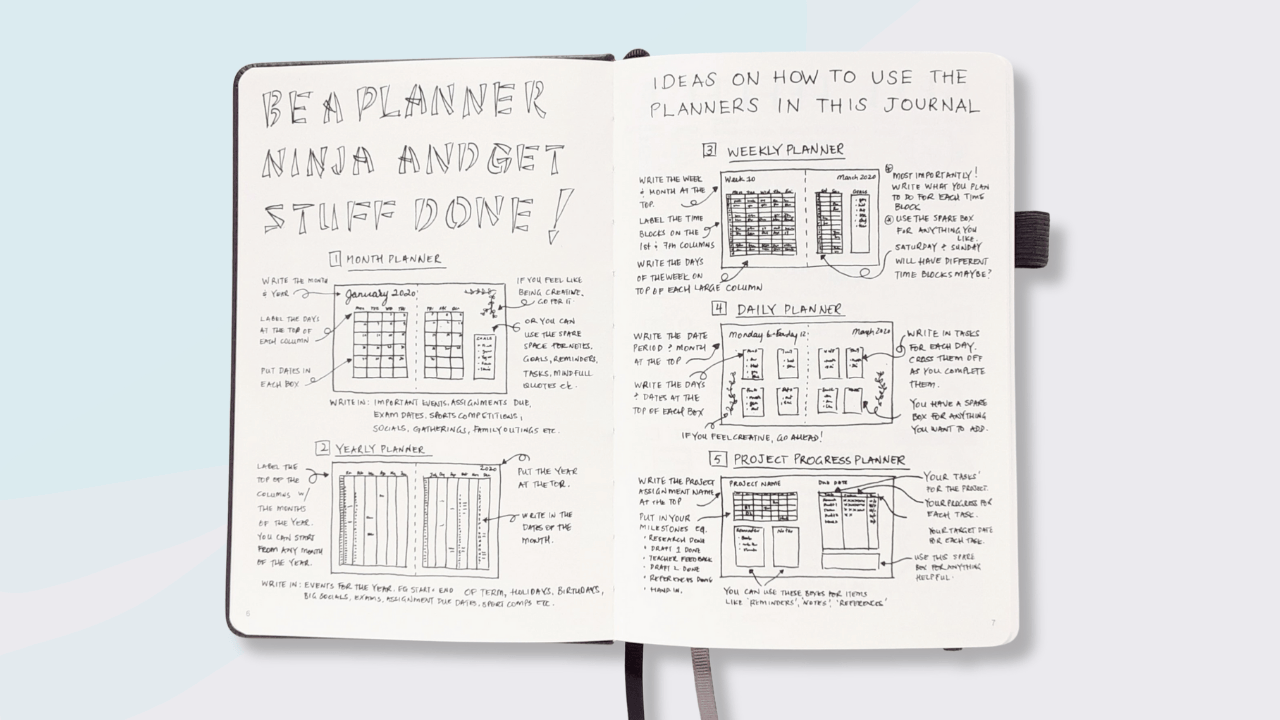 BE A PLANNER
NINJA AND GET
STUFF DONE!
1 MONTH PLANNER
WRITE THE MONTH
& YEAR
LABEL THE DAYS
AT THE TOP OF
EACH COLUMN
PUT DATES IN
EACH BOX
January 2020
GOALS
IF YOU FEEL LIKE
BEING CREATIVE,
GO FOR IT
OR YOU CAN
USE THE SPARE
SPACE FOR NOTES,
GOALS, REMINDERS,
TASKS, MINDFULL
QUOTES etc.
WRITE IN: IMPORTANT EVENTS, ASSIGNMENTS DUE,
EXAM DATES, SPORTS COMPETITIONS,
SOCIALS, GATHERINGS, FAMILY OUTINGS ETC.
2 YEARLY PLANNER
LABEL THE
TOP OF THE
COLUMNS W/
THE MONTHS
OF THE YEAR.
YOU CAN START
FROM ANY MONTH
OF THE YEAR.
2020
PUT THE YEAR
AT THE TOP.
WRITE IN THE
DATES OF THE
MONTH.
WRITE IN: EVENTS FOR THE YEAR. EG START & END OF TERM, HOLIDAYS, BIRTHDAYS,
BIG SOCIALS, EXAMS, ASSIGNMENT DUE DATES, SPORT COMPS ETC.
6
IDEAS ON HOW TO USE THE
PLANNERS IN THIS JOURNAL
3 WEEKLY PLANNER
WRITE THE WEEK
& MONTH AT THE
TOP.
LABEL THE TIME
BLOCKS ON THE
1st & 7th COLUMNS
WRITE THE DAYS
OF THE WEEK ON
TOP OF EACH LARGE COLUMN
Week 10
March 2020
GOALS
MOST IMPORTANTLY!
WRITE WHAT YOU PLAN
TO DO FOR EACH TIME
BLOCK
USE THE SPARE BOX
FOR ANYTHING YOU
LIKE.
SATURDAY & SUNDAY
WILL HAVE DIFFERENT
TIME BLOCKS MAYBE?
4 DAILY PLANNER
WRITE THE DATE
PERIOD & MONTH
AT THE TOP
WRITE THE DAYS
& DATES AT THE
TOP OF EACH BOX
Monday 6 - Sunday 12
March 2020
WRITE IN TASKS
FOR EACH DAY.
CROSS THEM OFF
AS YOU COMPLETE
THEM.
YOU HAVE A SPARE
BOX FOR ANYTHING
YOU WANT TO ADD.
IF YOU FEEL CREATIVE, GO AHEAD!
5 PROJECT PROGRESS PLANNER
WRITE THE PROJECT
ASSIGNMENT NAME
AT the TOP
PUT IN YOUR
MILESTONES EG.
• RESEARCH DONE
• DRAFT 1 DONE
• TEACHER FEEDBACK
• DRAFT 2 DONE
• REFERENCES DONE
• HAND IN.
PROJECT NAME
DUE DATE
YOUR 'TASKS'
FOR THE PROJECT.
YOUR PROGRESS FOR
EACH TASK.
YOUR TARGET DATE
FOR EACH TASK.
USE THIS SPARE
BOX FOR ANYTHING
HELPFUL.
YOU CAN USE THESE BOXES FOR ITEMS
LIKE 'REMINDERS', NOTES', 'REFERENCES'
7